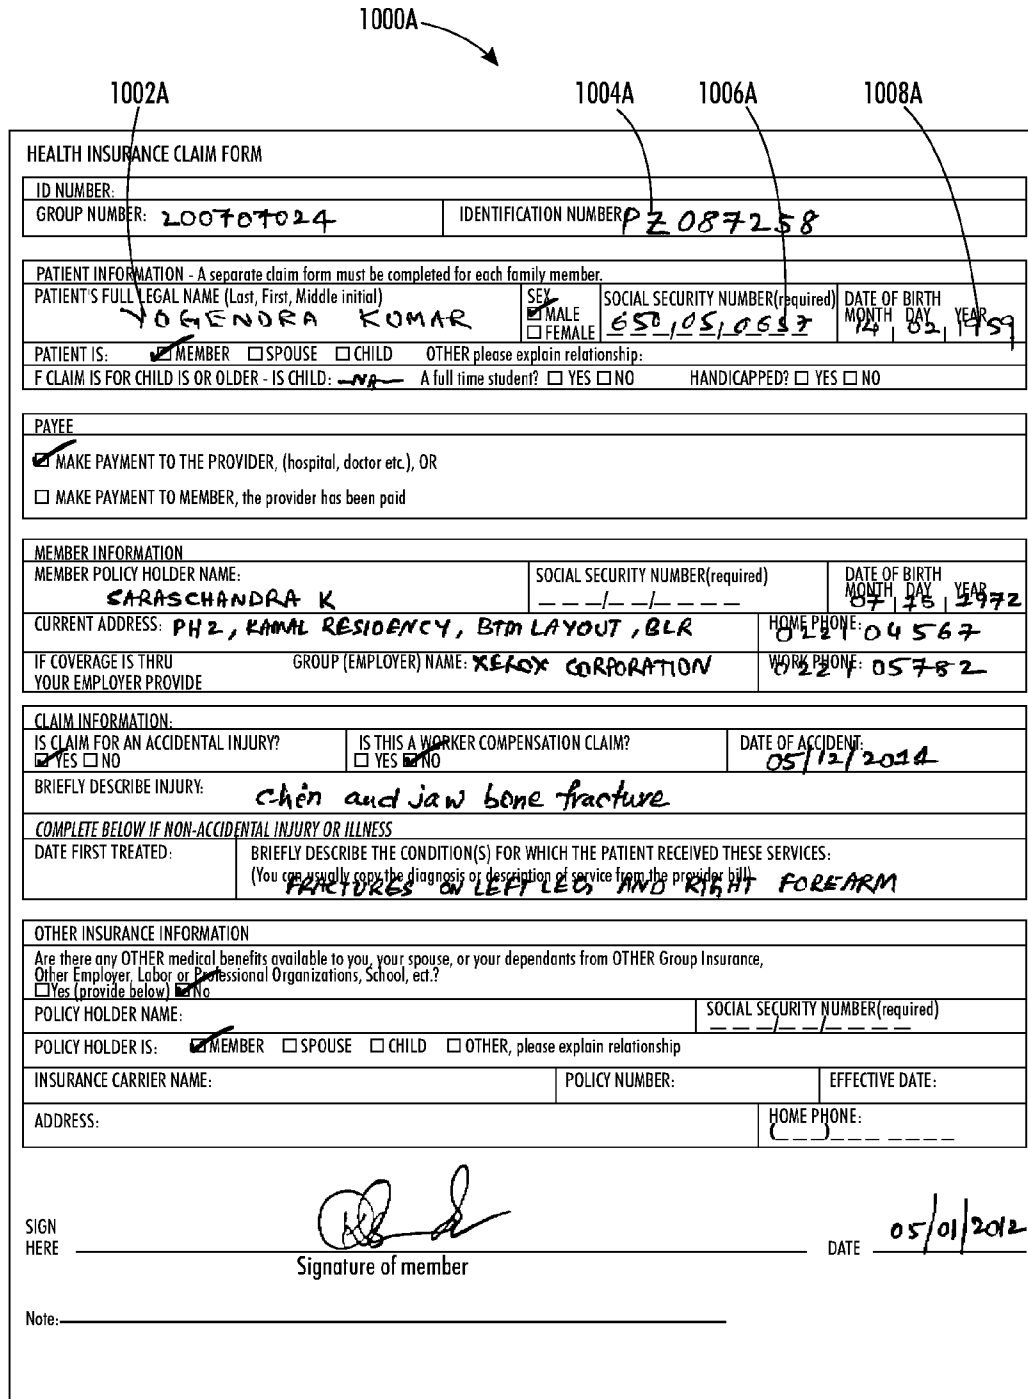 1000A
1002A 1004A 1006A 1008A
HEALTH INSURANCE CLAIM FORM
ID NUMBER:
GROUP NUMBER: 200707024 IDENTIFICATION NUMBER PZ087258
PATIENT INFORMATION - A separate claim form must be completed for each family member.
PATIENT'S FULL LEGAL NAME (Last, First, Middle initial) SEX SOCIAL SECURITY NUMBER(required) DATE OF BIRTH
YOGENDRA KUMAR MALE 650,05,0657 MONTH DAY YEAR
FEMALE 14 02 1959
PATIENT IS: MEMBER SPOUSE CHILD OTHER please explain relationship:
F CLAIM IS FOR CHILD IS OR OLDER - IS CHILD: NA A full time student? YES NO HANDICAPPED? YES NO
PAYEE
MAKE PAYMENT TO THE PROVIDER, (hospital, doctor etc.), OR
MAKE PAYMENT TO MEMBER, the provider has been paid
MEMBER INFORMATION
MEMBER POLICY HOLDER NAME: SOCIAL SECURITY NUMBER(required) DATE OF BIRTH
MONTH DAY YEAR
SARASCHANDRA K _ _ _/_ _/_ _ _ _ 07 15 1972
CURRENT ADDRESS: PH2, KAMAL RESIDENCY, BTM LAYOUT, BLR HOME PHONE: 0221 04567
IF COVERAGE IS THRU GROUP (EMPLOYER) NAME: XEROX CORPORATION WORK PHONE: 0221 05782
YOUR EMPLOYER PROVIDE
CLAIM INFORMATION:
IS CLAIM FOR AN ACCIDENTAL INJURY? IS THIS A WORKER COMPENSATION CLAIM? DATE OF ACCIDENT:
YES NO YES NO 05/12/2014
BRIEFLY DESCRIBE INJURY: chin and jaw bone fracture
COMPLETE BELOW IF NON-ACCIDENTAL INJURY OR ILLNESS
DATE FIRST TREATED: BRIEFLY DESCRIBE THE CONDITION(S) FOR WHICH THE PATIENT RECEIVED THESE SERVICES:
(You can usually copy the diagnosis or description of service from the provider bill)
FRACTURES ON LEFT LEG AND RIGHT FOREARM
OTHER INSURANCE INFORMATION
Are there any OTHER medical benefits available to you, your spouse, or your dependants from OTHER Group Insurance,
Other Employer, Labor or Professional Organizations, School, ect.?
Yes (provide below) No
POLICY HOLDER NAME: SOCIAL SECURITY NUMBER(required)
_ _ _/_ _/_ _ _ _
POLICY HOLDER IS: MEMBER SPOUSE CHILD OTHER, please explain relationship
INSURANCE CARRIER NAME: POLICY NUMBER: EFFECTIVE DATE:
ADDRESS: HOME PHONE:
(_ _ _)_ _ _ _ _ _ _
SIGN
HERE DATE 05/01/2012
Signature of member
Note: